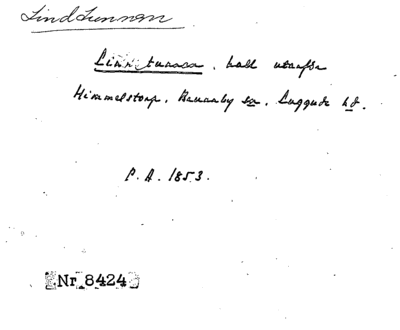 Lindtunnan
Linntunnan. kall utanför
Himmelstorp. Brunnby sn. Luggude hd.
P. A. 1853.
Nr 8424